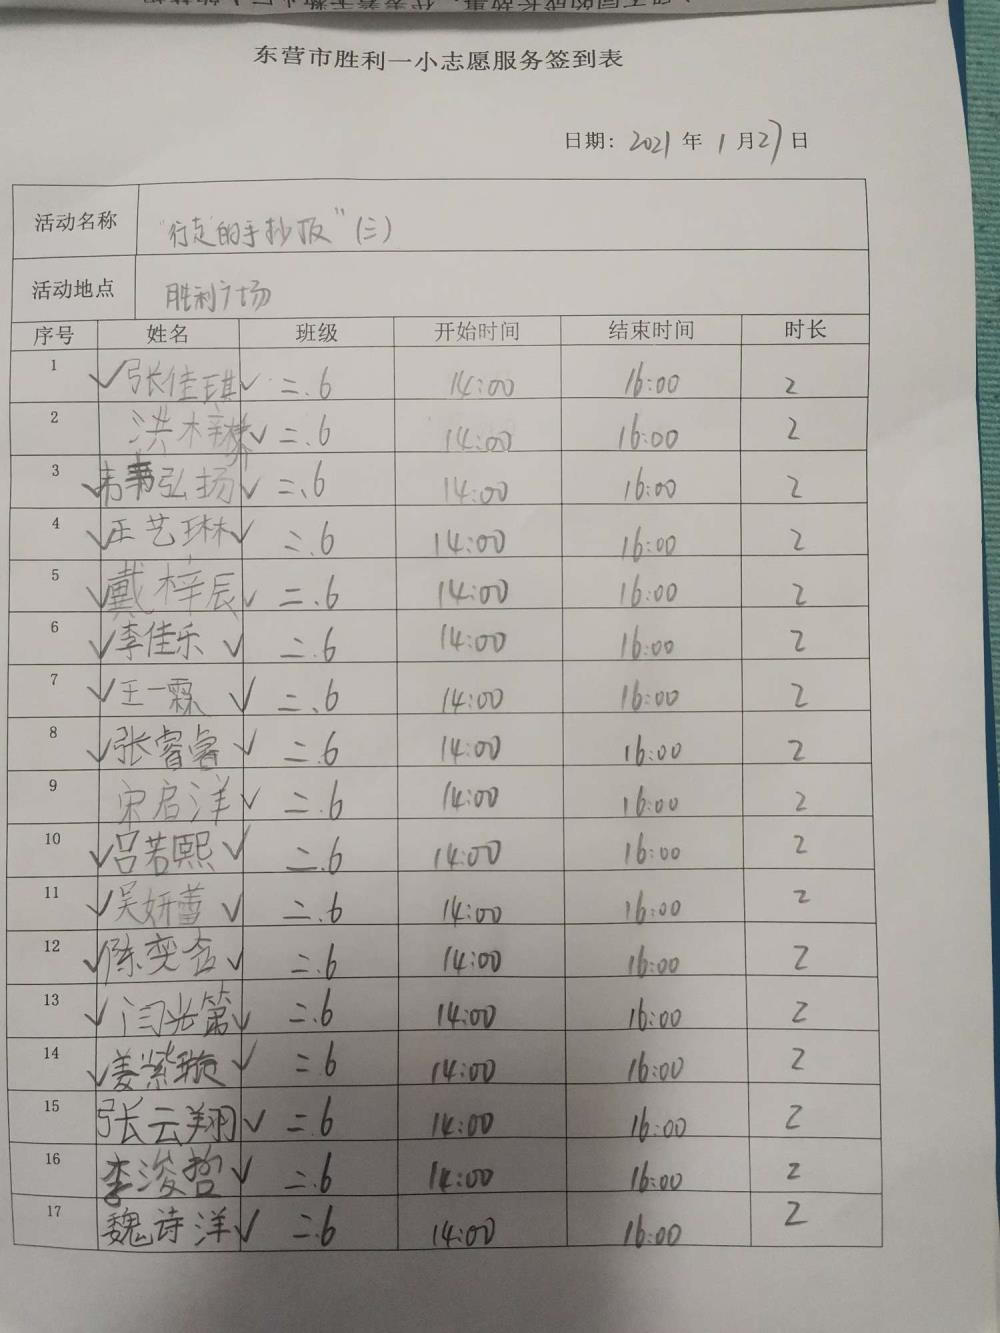 东营市胜利一小志愿服务签到表
日期: 2021 年 1 月 27 日
活动名称 "行走的手抄报"(三)
活动地点 胜利广场
序号 姓名 班级 开始时间 结束时间 时长
1 ✓张佳琪✓ 二.6 14:00 16:00 2
2 洪梓✓ 二.6 14:00 16:00 2
3 ✓韦弘扬✓ 二.6 14:00 16:00 2
4 ✓王艺琳✓ 二.6 14:00 16:00 2
5 ✓戴梓辰✓ 二.6 14:00 16:00 2
6 ✓李佳乐✓ 二.6 14:00 16:00 2
7 ✓王一霖✓ 二.6 14:00 16:00 2
8 ✓张睿睿✓ 二.6 14:00 16:00 2
9 宋启洋✓ 二.6 14:00 16:00 2
10 ✓吕若熙✓ 二.6 14:00 16:00 2
11 ✓吴妍蕾✓ 二.6 14:00 16:00 2
12 ✓陈奕✓ 二.6 14:00 16:00 2
13 ✓闫光第✓ 二.6 14:00 16:00 2
14 ✓姜紫璇✓ 二.6 14:00 16:00 2
15 张云翔✓ 二.6 14:00 16:00 2
16 李浚哲✓ 二.6 14:00 16:00 2
17 魏诗洋✓ 二.6 14:00 16:00 2